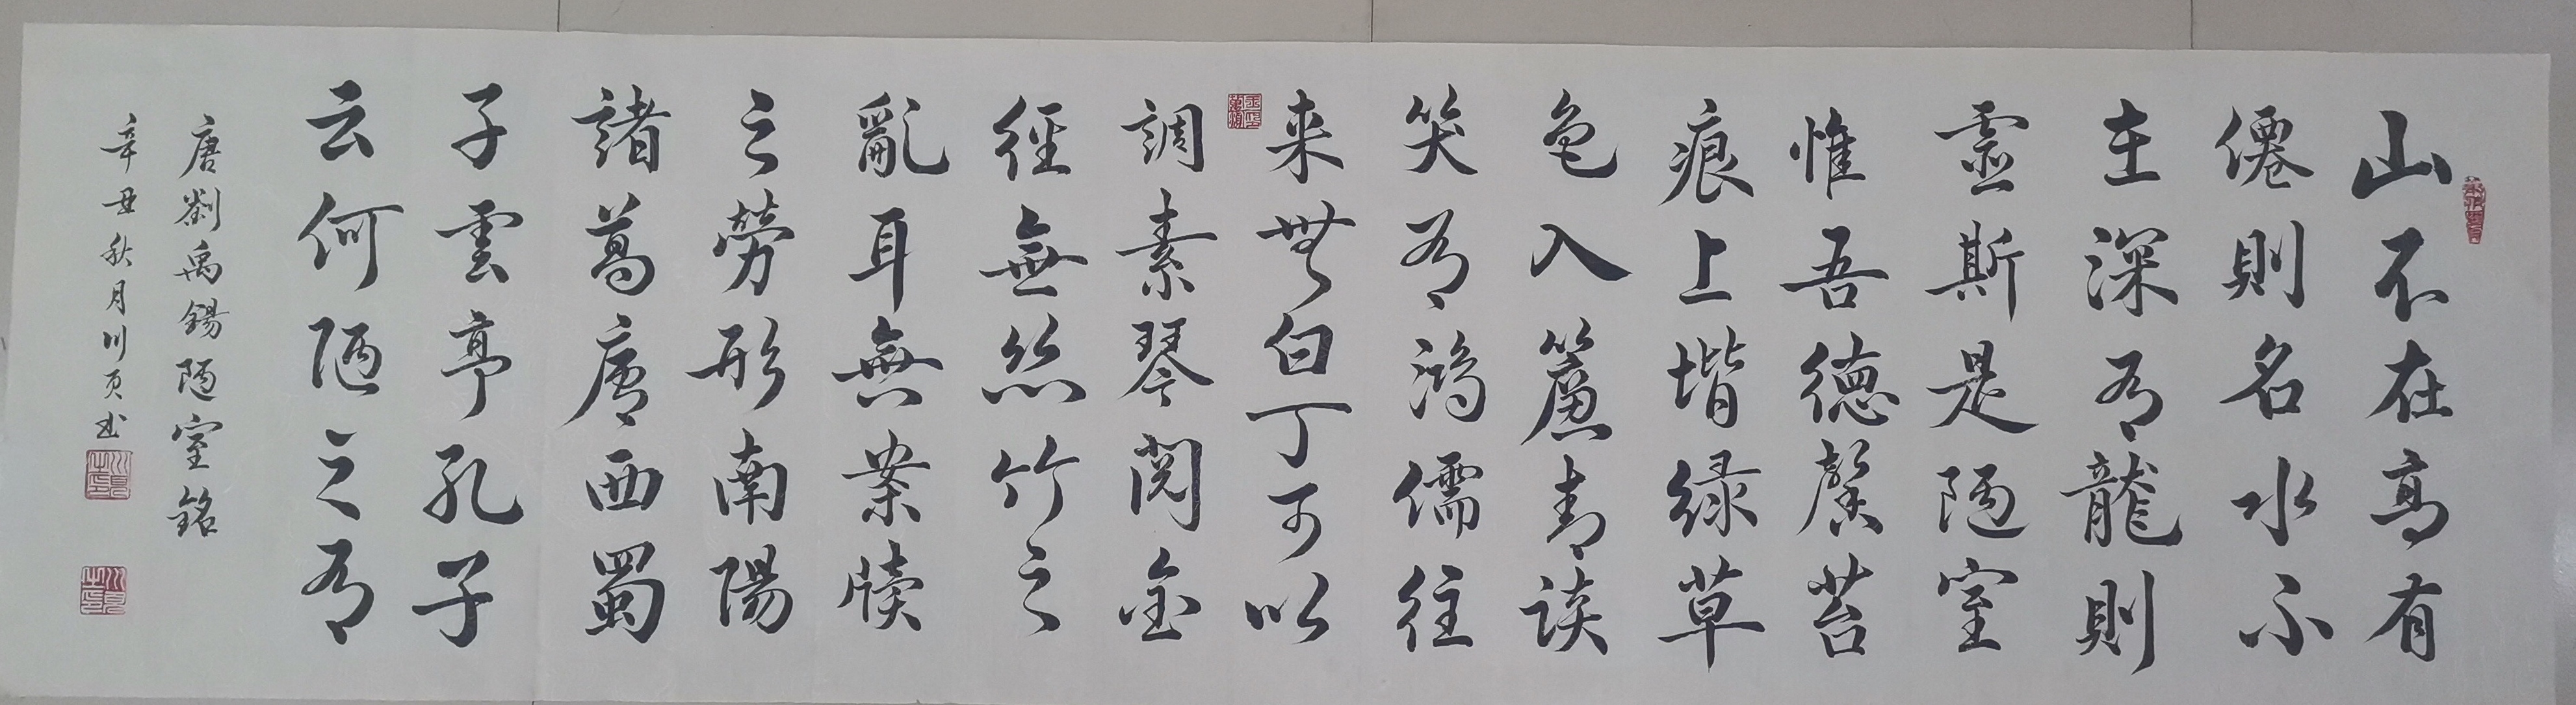 山不在高有
僊則名水不
在深有龍則
靈斯是陋室
惟吾德馨苔
痕上堦緑草
色入簾青談
笑有鴻儒往
来無白丁可以
調素琴閱金
經無絲竹之
亂耳無案牘
之勞形南陽
諸葛廬西蜀
子雲亭孔子
云何陋之有
唐劉禹錫陋室銘
辛丑秋月川页书